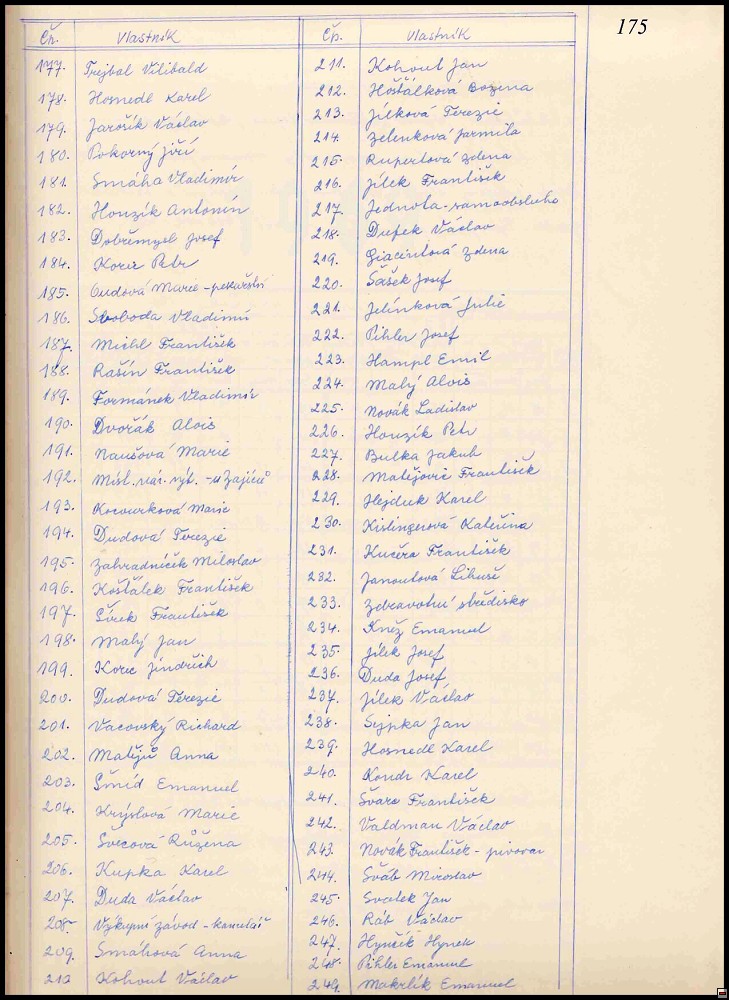 175
Čp. Vlastník
177. Trejbal Vilibald
178. Hosnedl Karel
179. Jarošík Václav
180. Pokorný Jiří
181. Smáha Vladimír
182. Houzík Antonín
183. Dobřemysl Josef
184. Korec Petr
185. Oudová Marie - pekařství
186. Svoboda Vladimír
187. Michl František
188. Rašín František
189. Formánek Vladimír
190. Dvořák Alois
191. Naušová Marie
192. Míst. nár. výb. - u Zajíců
193. Kocourková Marie
194. Dudová Terezie
195. Zahradníček Miloslav
196. Košťálek František
197. Šírek František
198. Malý Jan
199. Korec Jindřich
200. Dudová Terezie
201. Vacovský Richard
202. Matějů Anna
203. Šmíd Emanuel
204. Krýslová Marie
205. Švecová Růžena
206. Kupka Karel
207. Duda Václav
208. Výkupní závod - kancelář
209. Smáhová Anna
210 Kohout Václav
Čp. Vlastník
211. Kohout Jan
212. Hošťálková Božena
213. Jílková Terezie
214. Zelenková Jarmila
215. Rupertová Zdena
216. Jílek František
217. Jednota - samoobsluha
218. Dufek Václav
219. Giacintová Zdena
220. Šašek Josef
221. Jelínková Julie
222. Pihler Josef
223. Hampl Emil
224. Malý Alois
225. Novák Ladislav
226. Houzík Petr
227. Bulka Jakub
228. Matějovic František
229. Hejduk Karel
230. Kislingerová Kateřina
231. Kučera František
232. Janoutová Libuše
233. Zdravotní středisko
234. Kněz Emanuel
235. Jílek Josef
236. Duda Josef
237. Jílek Václav
238. Sypka Jan
239. Hosnedl Karel
240. Kondr Karel
241. Švarc František
242. Valdman Václav
243. Novák František - pivovar
244. Šváb Miroslav
245. Svatek Jan
246. Ráb Václav
247. Hynčík Hynek
248. Pihler Emanuel
249. Makrlík Emanuel